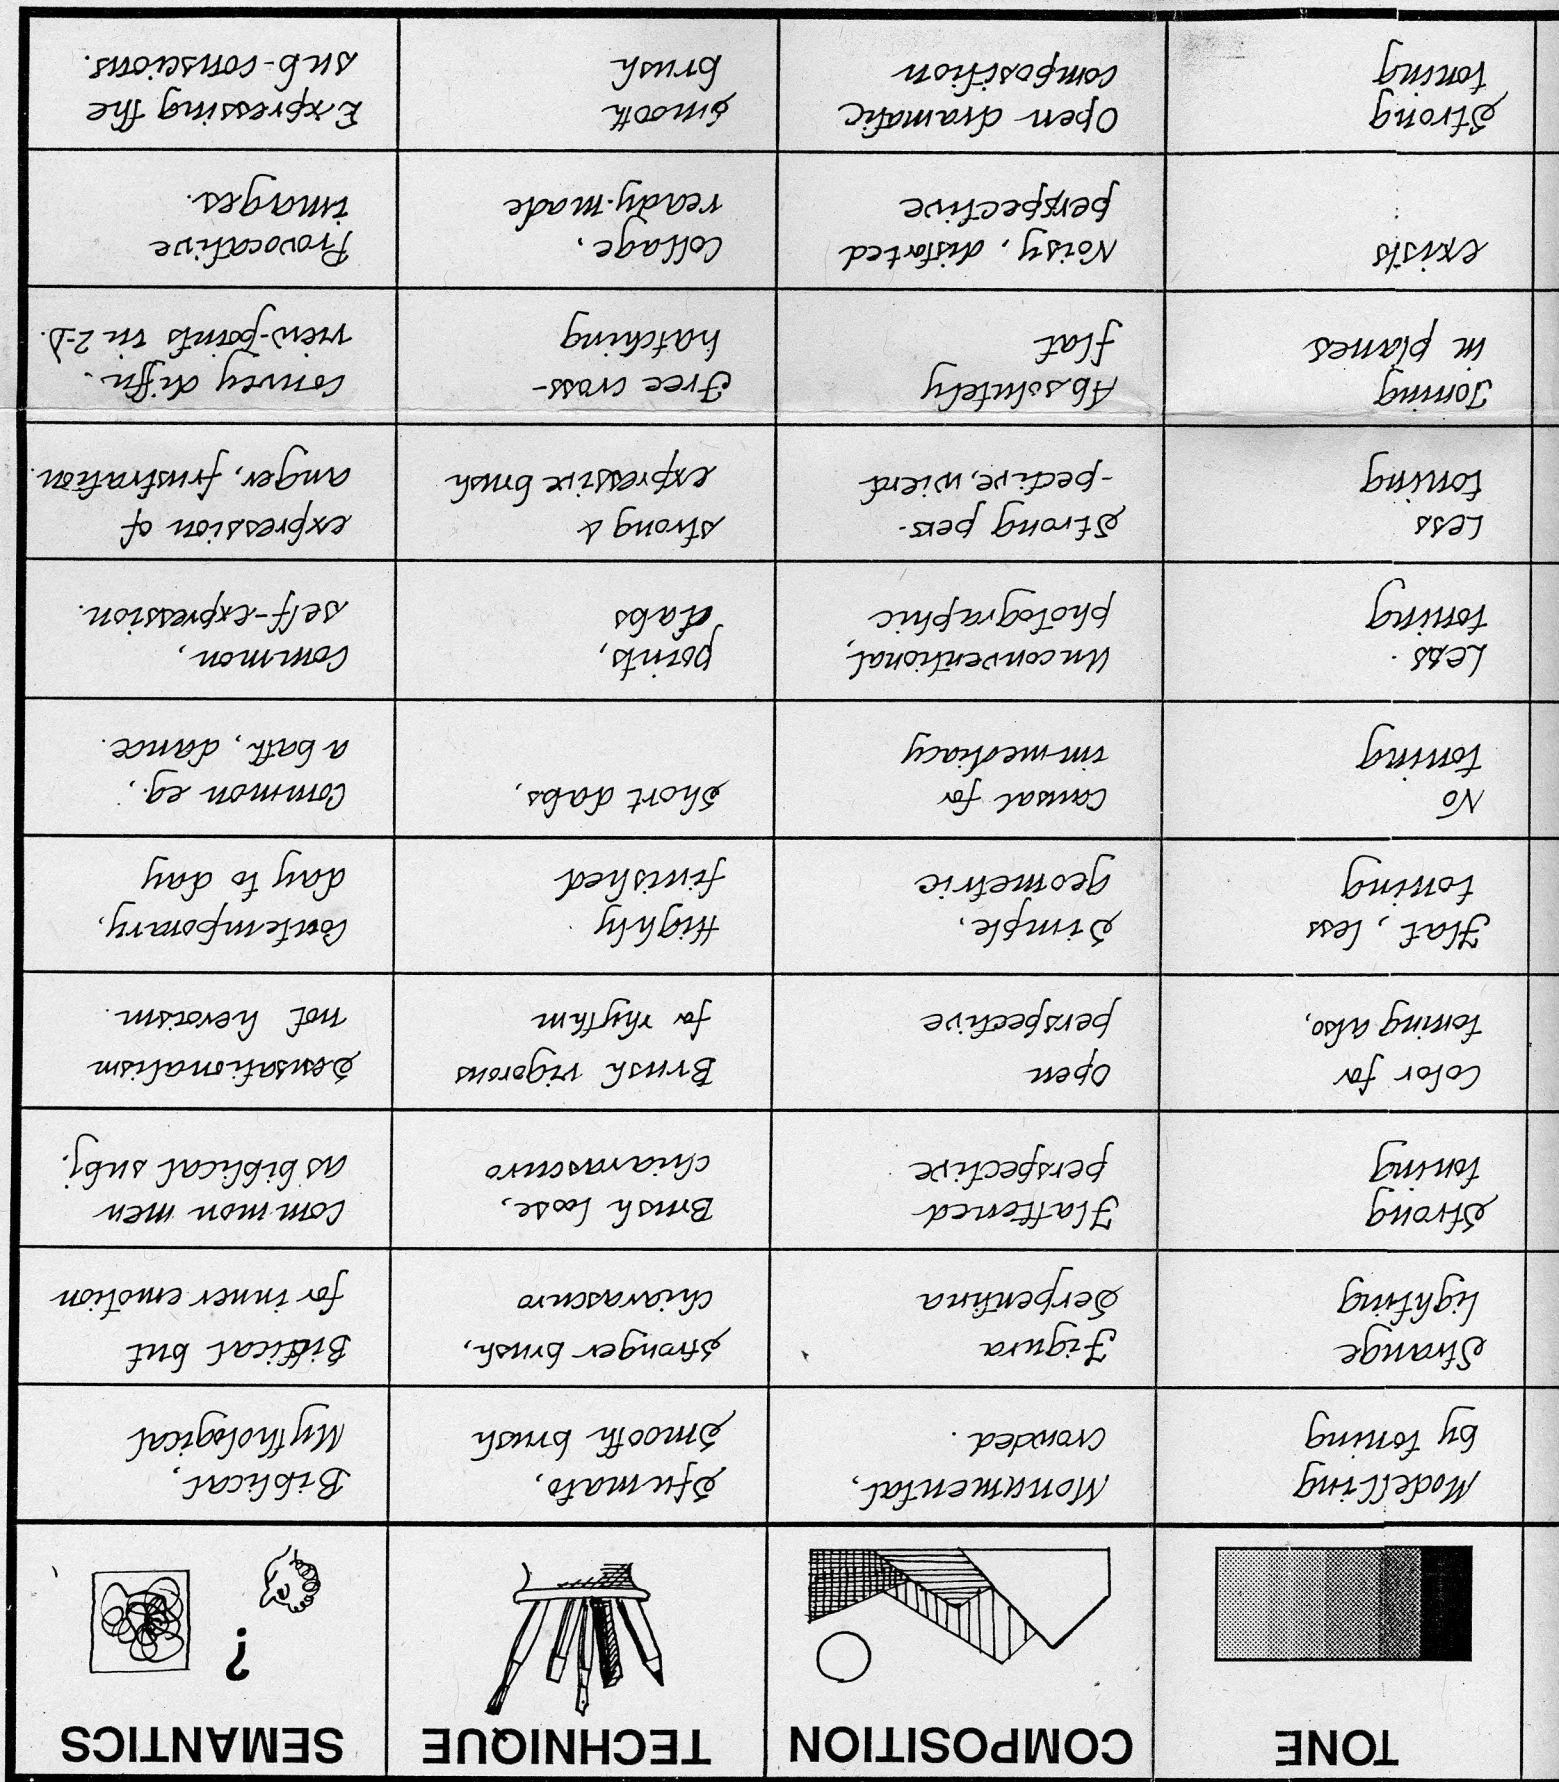 TONE
COMPOSITION
TECHNIQUE
SEMANTICS
?
Modelling
by toning
Monumental,
crowded.
Sfumato,
Smooth brush
Biblical,
Mythological
Strange
lighting
Figura
Serpentina
Stronger brush,
chiarascuro
Biblical but
for inner emotion
Strong
toning
Flattened
perspective
Brush loose,
chiarascuro
Common men
as biblical subj.
Color for
toning also,
Open
perspective
Brush vigorous
for rhythm
Sensationalism
not heroism.
Flat, less
toning
Simple,
geometric
Highly
finished
Contemporary,
day to day
No
toning
Causal for
immediacy
Short dabs,
Common eg.,
a bath, dance.
Less.
toning
Unconventional,
photographic
points,
dabs
Common,
self-expression.
Less
toning
Strong pers-
-pective, wierd
strong &
expressive brush
expression of
anger, frustration.
Toning
in planes
Absolutely
flat
Free cross-
hatching
Convey diffn.
view-points in 2-D.
exists
Noisy, distorted
perspective
Collage,
ready-made
Provocative
images.
Strong
toning
Open dramatic
composition
Smooth
brush
Expressing the
sub-conscious.